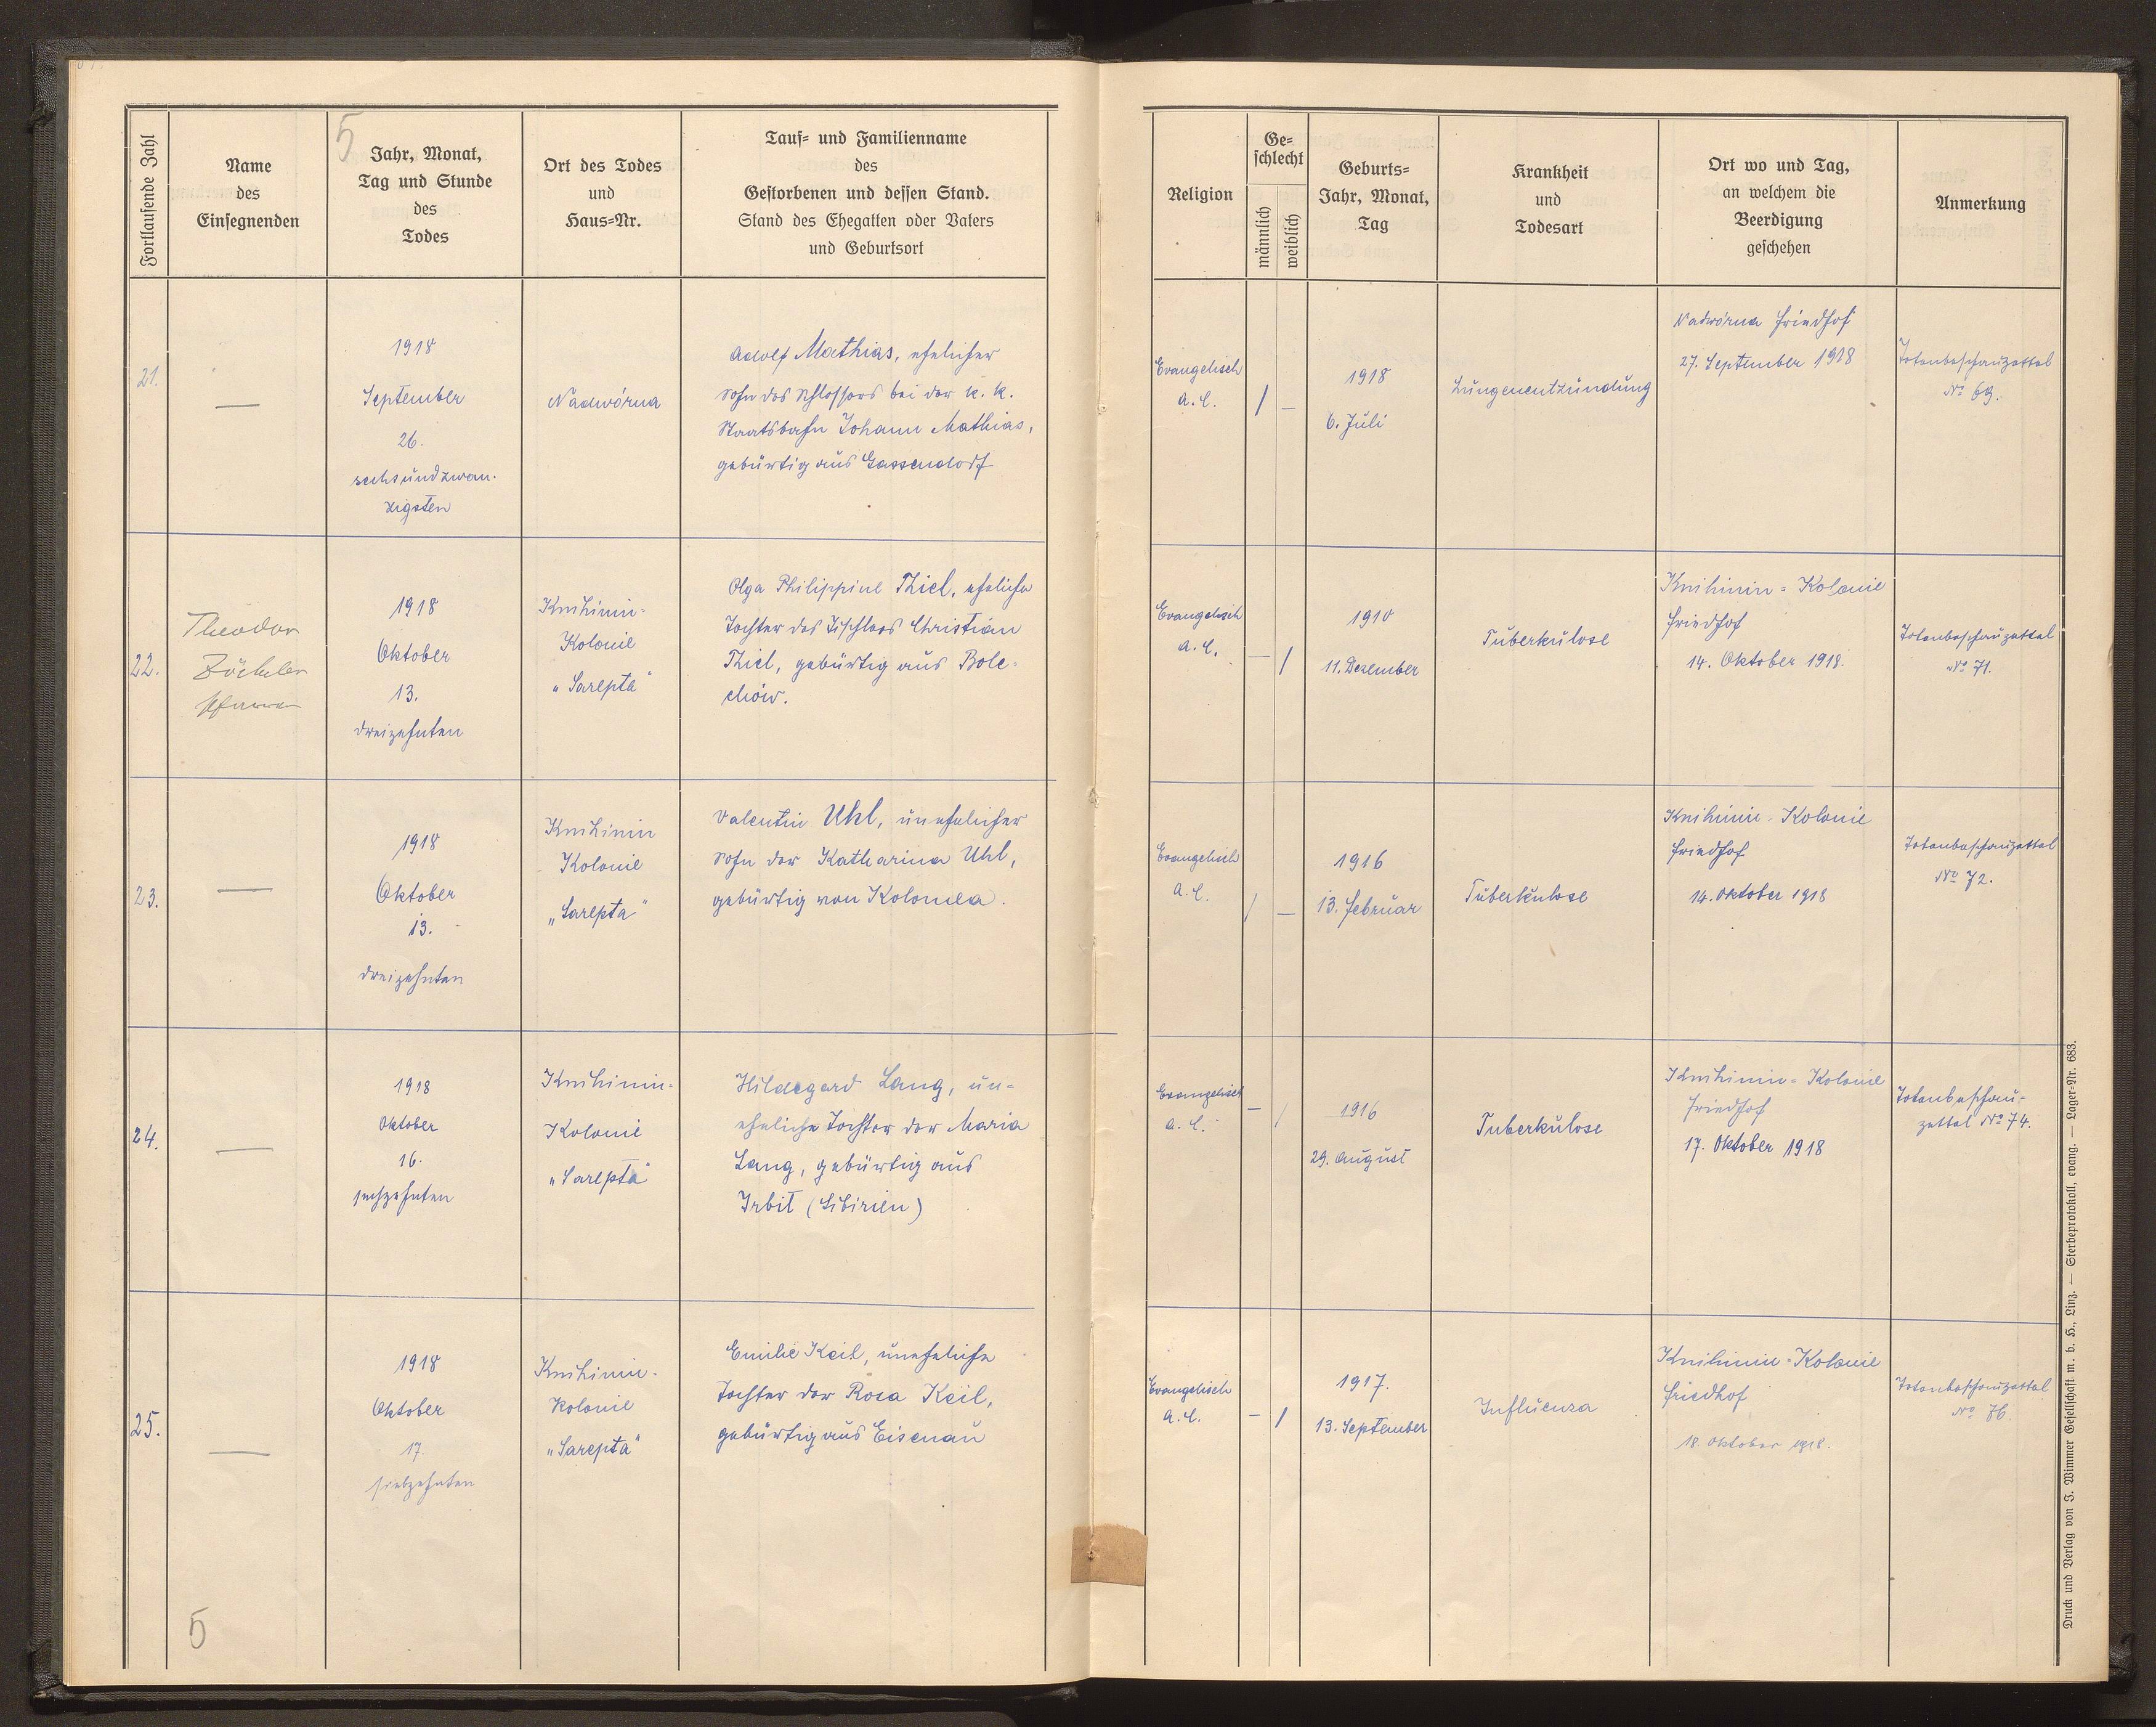 5
Fortlaufende Zahl
Name
des
Einsegnenden
Jahr, Monat,
Tag und Stunde
des
Todes
Ort des Todes
und
Haus=Nr.
Tauf= und Familienname
des
Gestorbenen und dessen Stand.
Stand des Ehegatten oder Vaters
und Geburtsort
Religion
Ge=
schlecht
männlich
weiblich
Geburts=
Jahr, Monat,
Tag
Krankheit
und
Todesart
Ort wo und Tag,
an welchem die
Beerdigung
geschehen
Anmerkung
21.
—
1918
September
26.
sechsundzwan-
zigsten
Nadwórna
Adolf Mathias, ehelicher
Sohn des Schlossers bei der k. k.
Staatsbahn Johann Mathias,
gebürtig aus Gassendorf
Evangelisch
A. C.
/ —
1918
6. Juli
Lungenentzündung
Nadwórna Friedhof
27. September 1918
Totenbeschauzettel
No 69.
22.
Theodor
Zöckler
Pfarrer
1918
Oktober
13.
dreizehnten
Knihinin-
Kolonie
"Sarepta"
Olga Philippine Thiel, eheliche
Tochter des Tischlers Christian
Thiel, gebürtig aus Bole-
chów.
Evangelisch
A. C.
— /
1910
11. Dezember
Tuberkulose
Knihinin=Kolonie
Friedhof
14. Oktober 1918.
Totenbeschauzettel
No 71.
23.
—
1918
Oktober
13.
dreizehnten
Knihinin
Kolonie
„Sarepta"
Valentin Uhl, unehelicher
Sohn der Katharina Uhl,
gebürtig von Kolomea.
Evangelisch
A. C.
/ —
1916
13. Februar
Tuberkulose
Knihinin-Kolonie
Friedhof
14. Oktober 1918
Totenbeschauzettel
No 72.
24.
—
1918
Oktober
16.
sechzehnten
Knihinin=
Kolonie
„Sarepta"
Hildegard Lang, un=
eheliche Tochter der Maria
Lang, gebürtig aus
Irbit (Sibirien)
Evangelisch
A. C.
— /
1916
29. August
Tuberkulose
Knihinin=Kolonie
Friedhof
17. Oktober 1918
Totenbeschau-
zettel No 74.
25.
—
1918
Oktober
17
siebzehnten
Knihinin-
Kolonie
„Sarepta"
Emilie Keil, uneheliche
Tochter der Rosa Keil,
gebürtig aus Eisenau
Evangelisch
A. C.
— /
1917.
13. September
Influenza
Knihinin=Kolonie
Friedhof
18. Oktober 1918.
Totenbeschauzettel
No 76.
5
Druck und Verlag von J. Wimmer Gesellschaft m. b. H., Linz. — Sterbeprotokoll, evang. — Lager=Nr. 683.